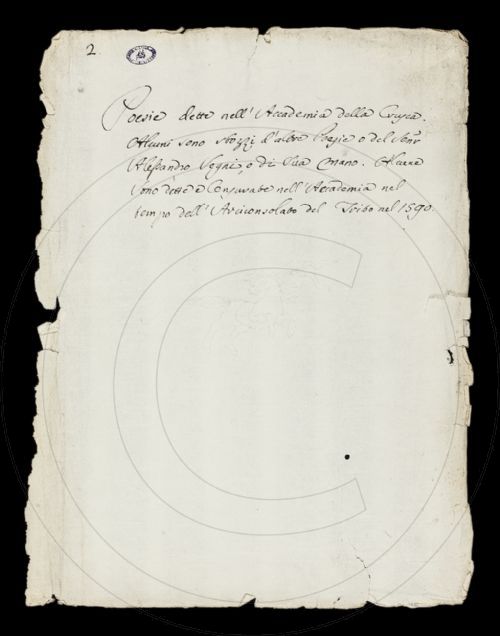 2.
Poesie dette nell'Accademia della Crusca.
Alcuni sono sbozzi d'altre Poesie o del Senr
Alessandro Segni, o di sua mano. Alcune
sono dette e Censurate nell'Accademia nel
tempo dell'Arciconsolato del Trito nel 1590.
C